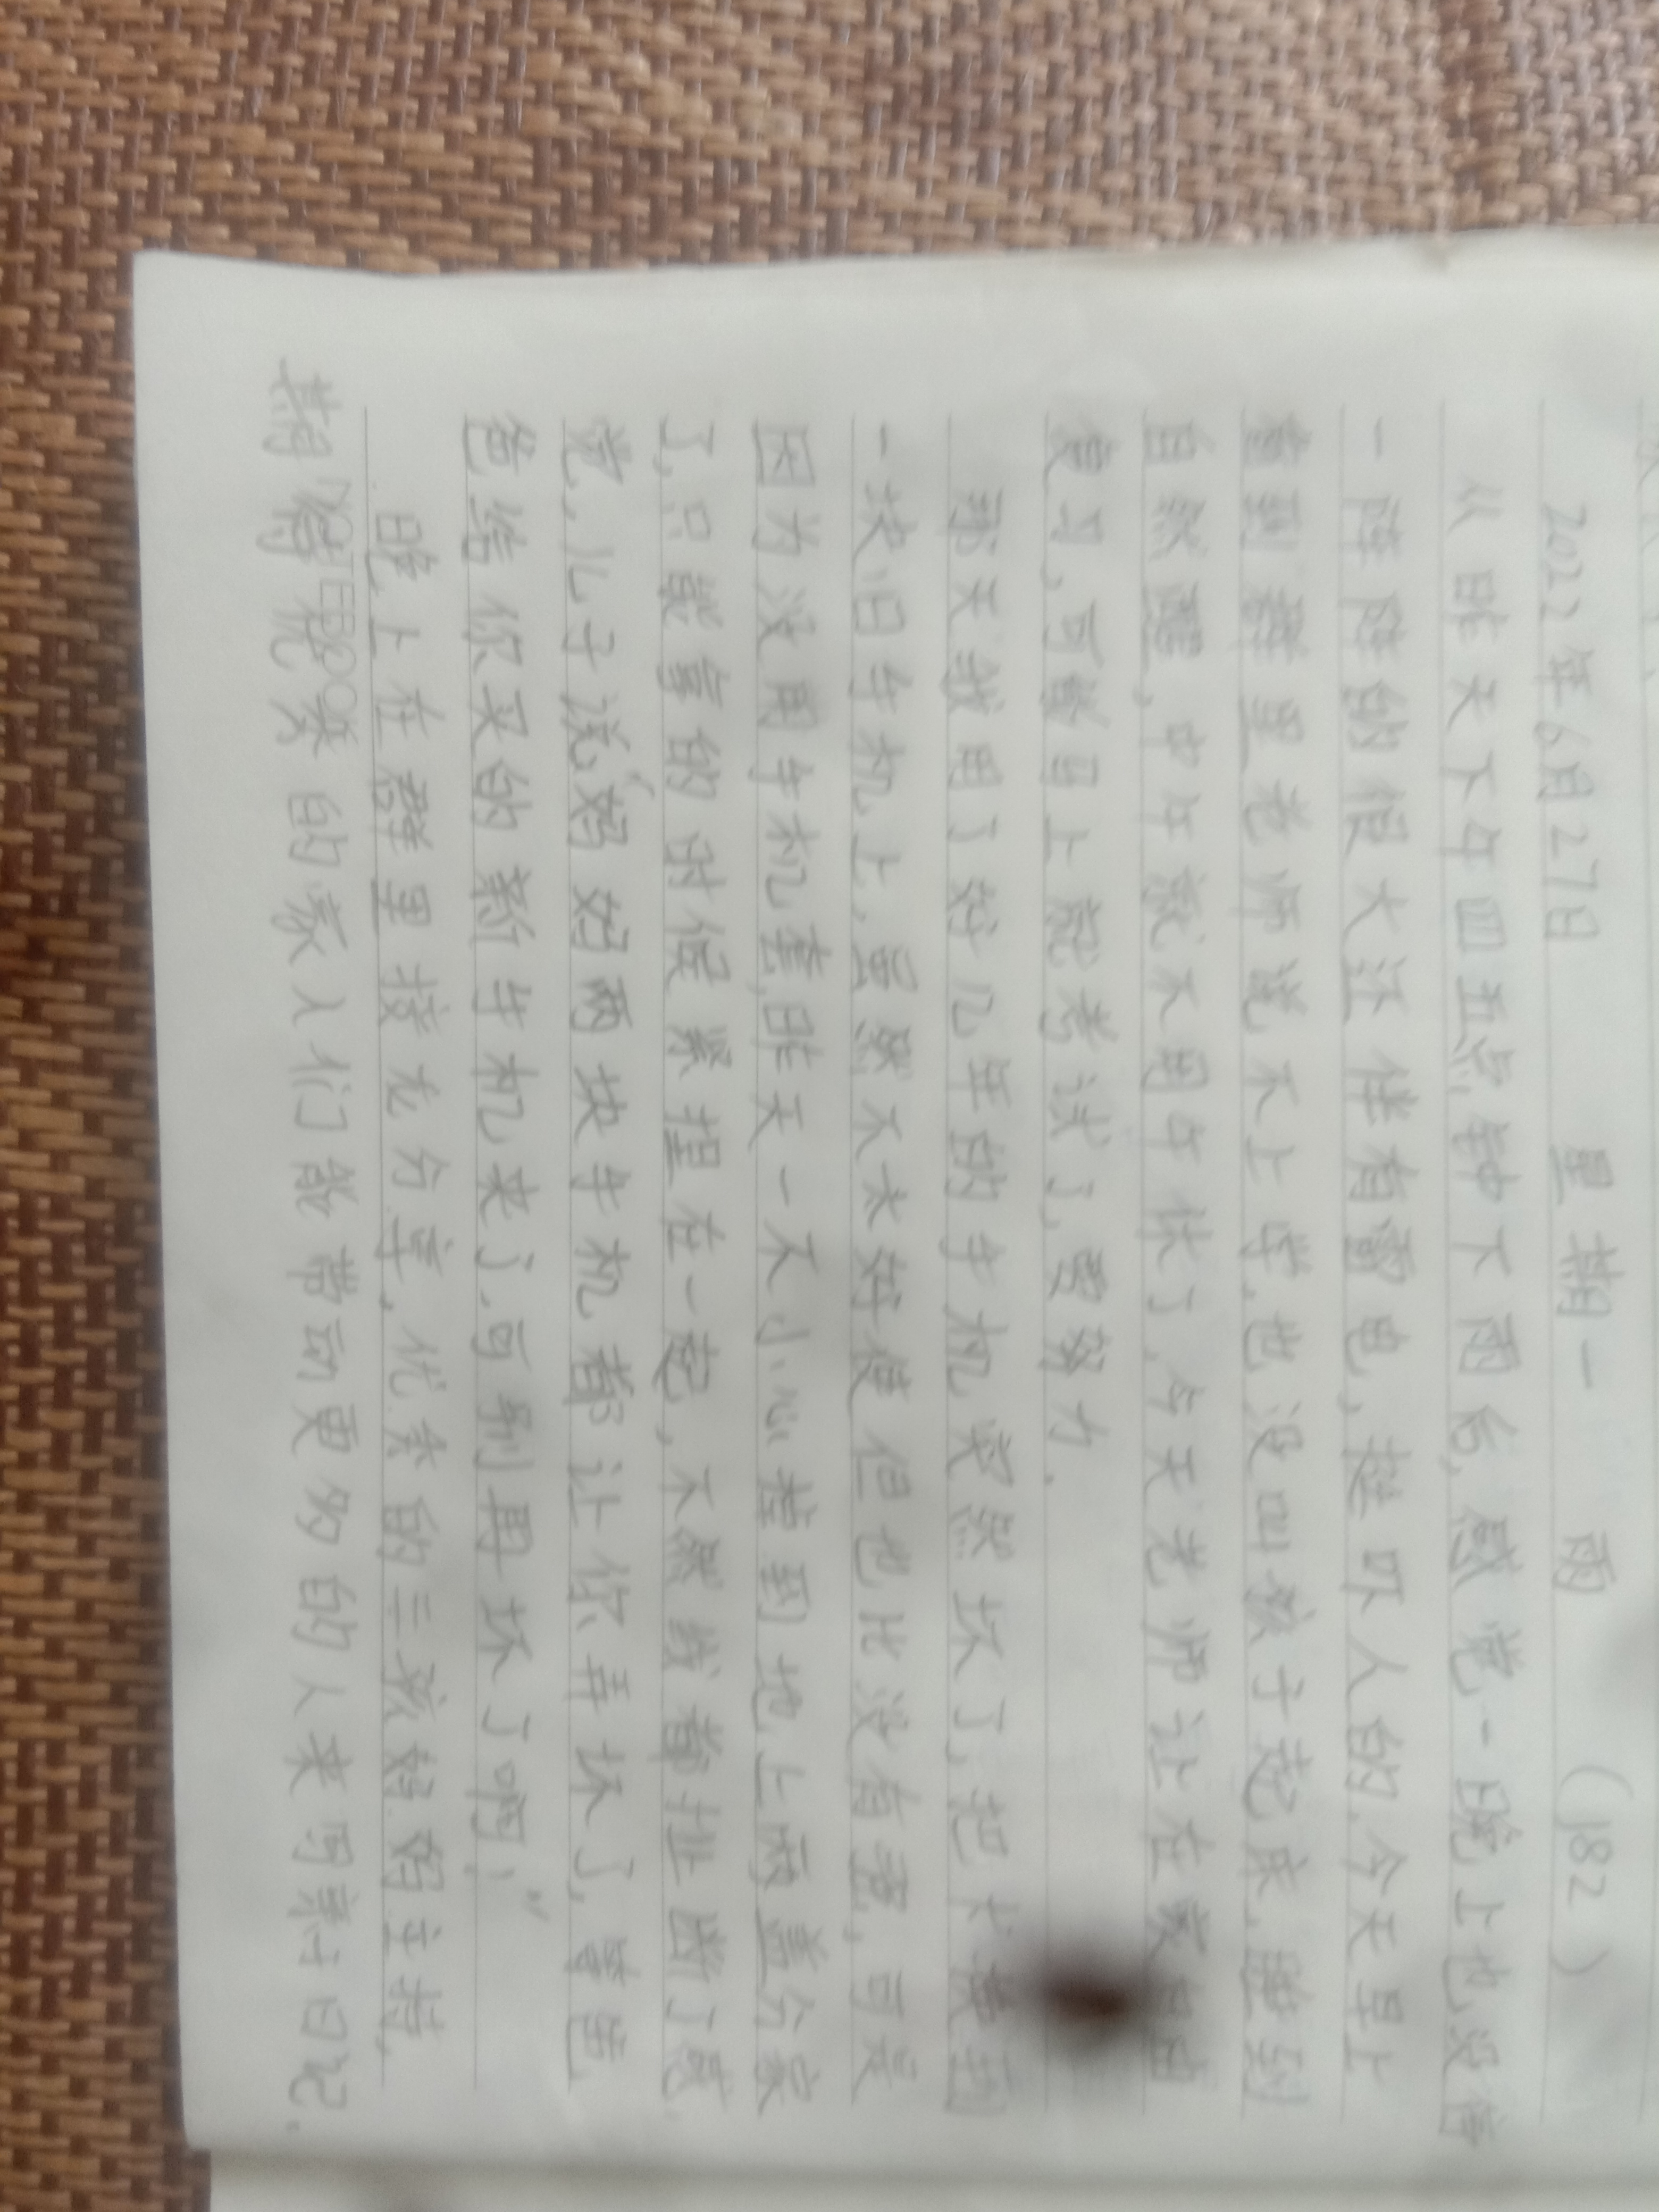 2022年6月27日 星期一 雨 (182)
从昨天下午四五点钟下雨后,感觉一晚上也没停
一阵阵的很大还伴有雷电,挺吓人的.今天早上
看到群里老师说不上学,也没叫孩子起来,睡到
自然醒,中午就不用午休了,今天老师让在家自由
复习,可能马上就考试了,要努力.
那天我用了好几年的手机突然坏了,把卡换到
一块旧手机上,虽然不太好使但也比没有强,可是
因为没用手机套,昨天一不小心掉到地上两盖分家
了,只能拿的时候紧捏在一起,不然线都扯断了感
觉,儿子说“妈妈两块手机都让你弄坏了,等爸
爸给你买的新手机来了,可别再坏了啊!”
晚上在群里接龙分享,优秀的三孩妈妈主持,
期待优秀的家人们能带动更多的人来写亲子日记.